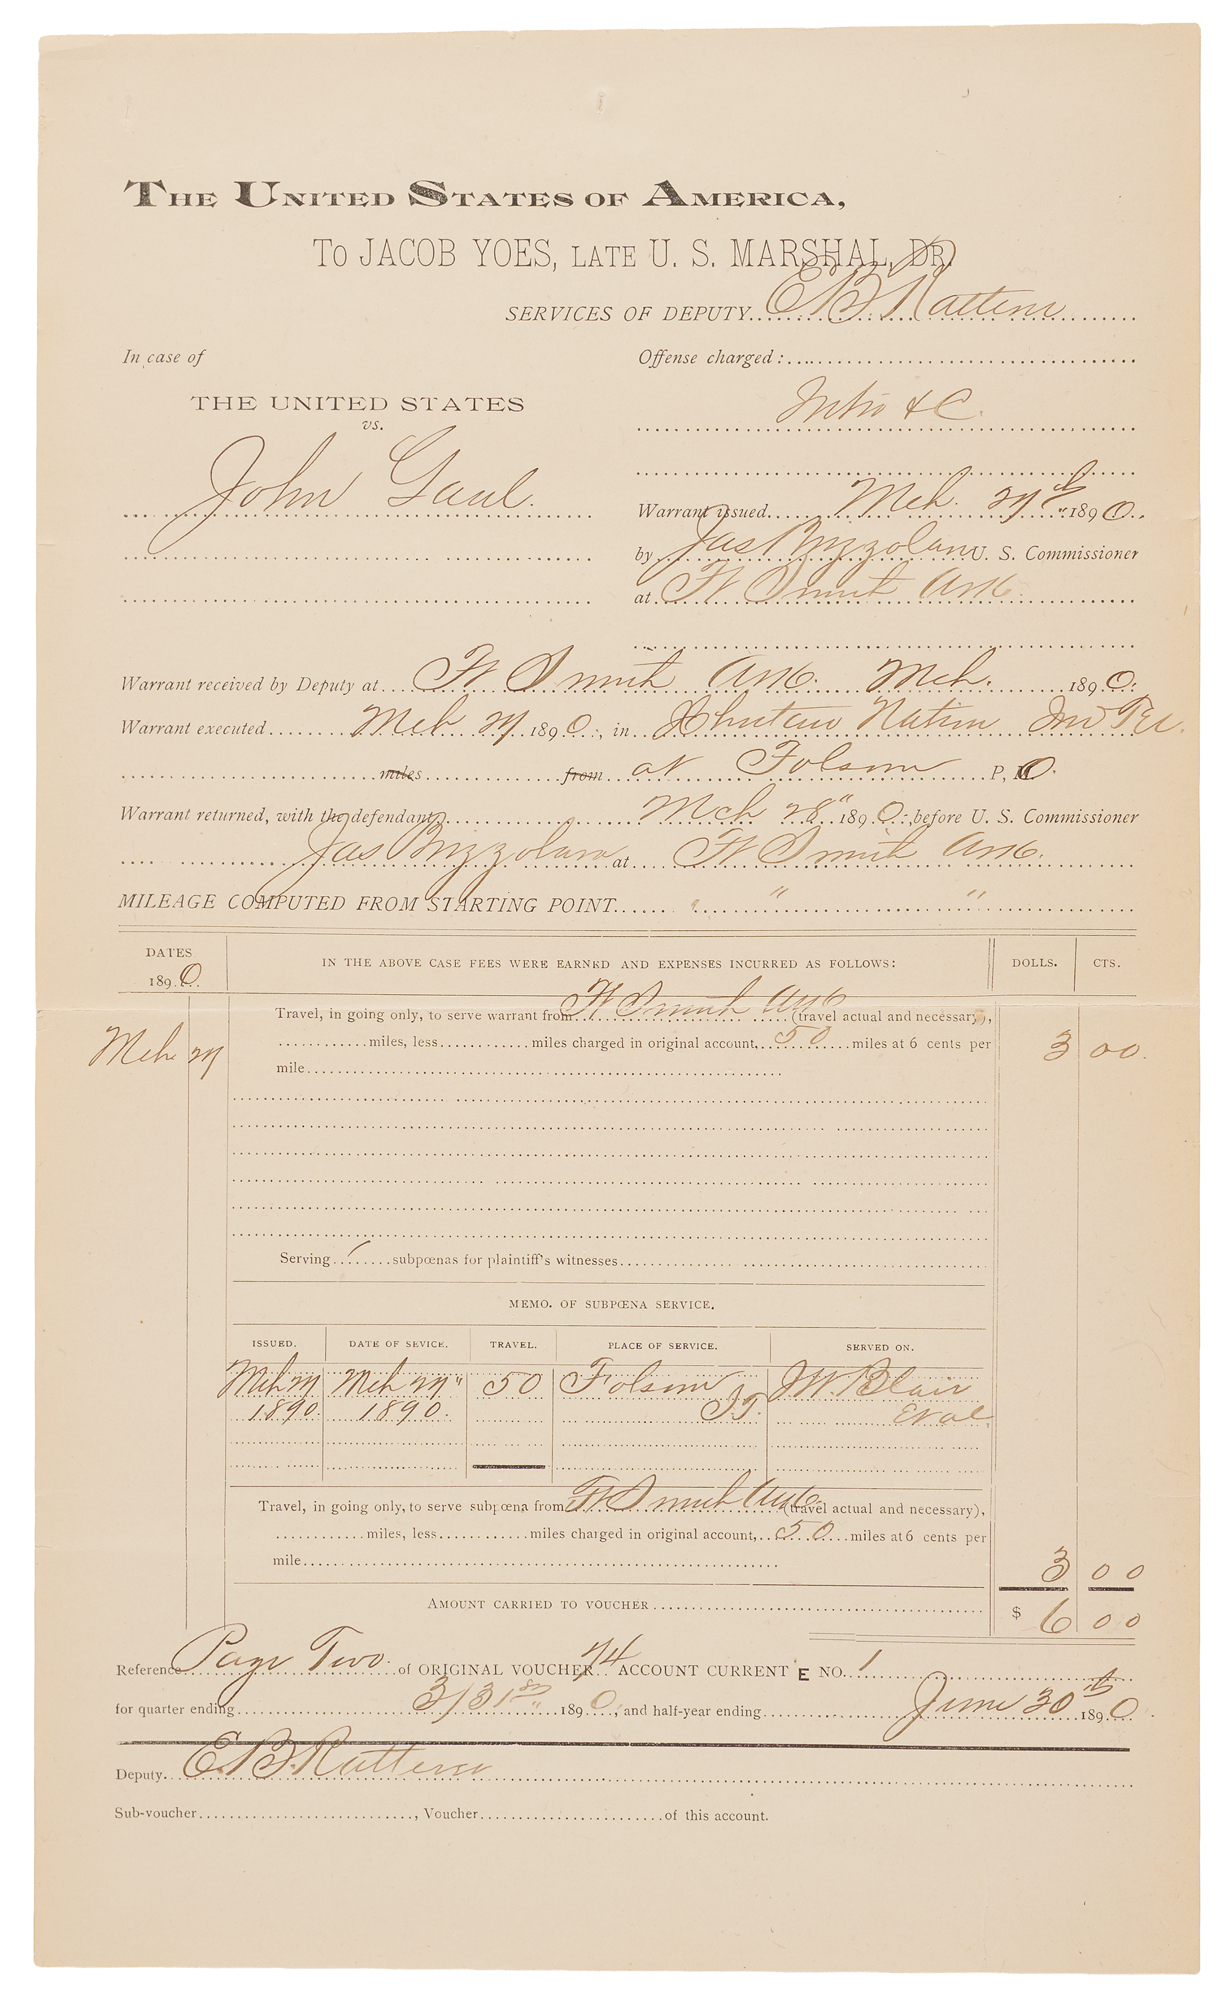 THE UNITED STATES OF AMERICA,
To JACOB YOES, LATE U. S. MARSHAL, DR.
SERVICES OF DEPUTY E B Ratteree
In case of
THE UNITED STATES
vs.
John Gaul.
Offense charged:
Intro & C.
Warrant issued Mch. 27th 1890.
by Jas Brizzolara U. S. Commissioner
at Ft Smith Ark.
Warrant received by Deputy at Ft Smith Ark. Mch. 1890.
Warrant executed Mch 27 1890, in Choctaw Nation Ind Ter.
miles from at Folsom P, O.
Warrant returned, with the defendant, Mch 28" 1890, before U. S. Commissioner
Jas Brizzolara at Ft Smith Ark.
MILEAGE COMPUTED FROM STARTING POINT " " "
DATES
1890.
IN THE ABOVE CASE FEES WERE EARNED AND EXPENSES INCURRED AS FOLLOWS:
DOLLS.
CTS.
Mch 27
Travel, in going only, to serve warrant from Ft Smith Ark (travel actual and necessary),
miles, less miles charged in original account, 50 miles at 6 cents per
mile
3 00
Serving 1 subpœnas for plaintiff's witnesses
MEMO. OF SUBPŒNA SERVICE.
ISSUED. DATE OF SEVICE. TRAVEL. PLACE OF SERVICE. SERVED ON.
Mch 27 Mch 27" 50 Folsom J. W. Blair
1890. 1890. I.T. Et al
Travel, in going only, to serve subpœna from Ft Smith Ark. (travel actual and necessary),
miles, less miles charged in original account, 50 miles at 6 cents per
mile
3 00
AMOUNT CARRIED TO VOUCHER $ 6 00
Reference Page Two of ORIGINAL VOUCHER 74 ACCOUNT CURRENT E NO. 1
for quarter ending 3/31st 1890, and half-year ending June 30th 1890.
Deputy. E. B. Ratteree
Sub-voucher, Voucher of this account.